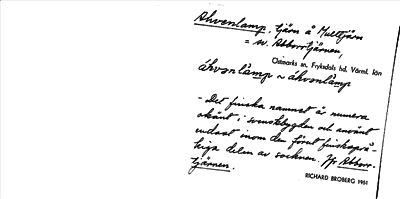 Ahvenlamp, tjärn å Multtjärn
= sv. Abborrtjärnen,
Östmarks sn, Fryksdals hd, Värml. län
áhvənlàmp ~ áhvənlàmp
- Det finska namnet är numera
okänt i svenskbygden och använt
endast inom den förut finsksprå-
kiga delen av socknen. Jfr Abborr-
tjärnen.
RICHARD BROBERG 1951